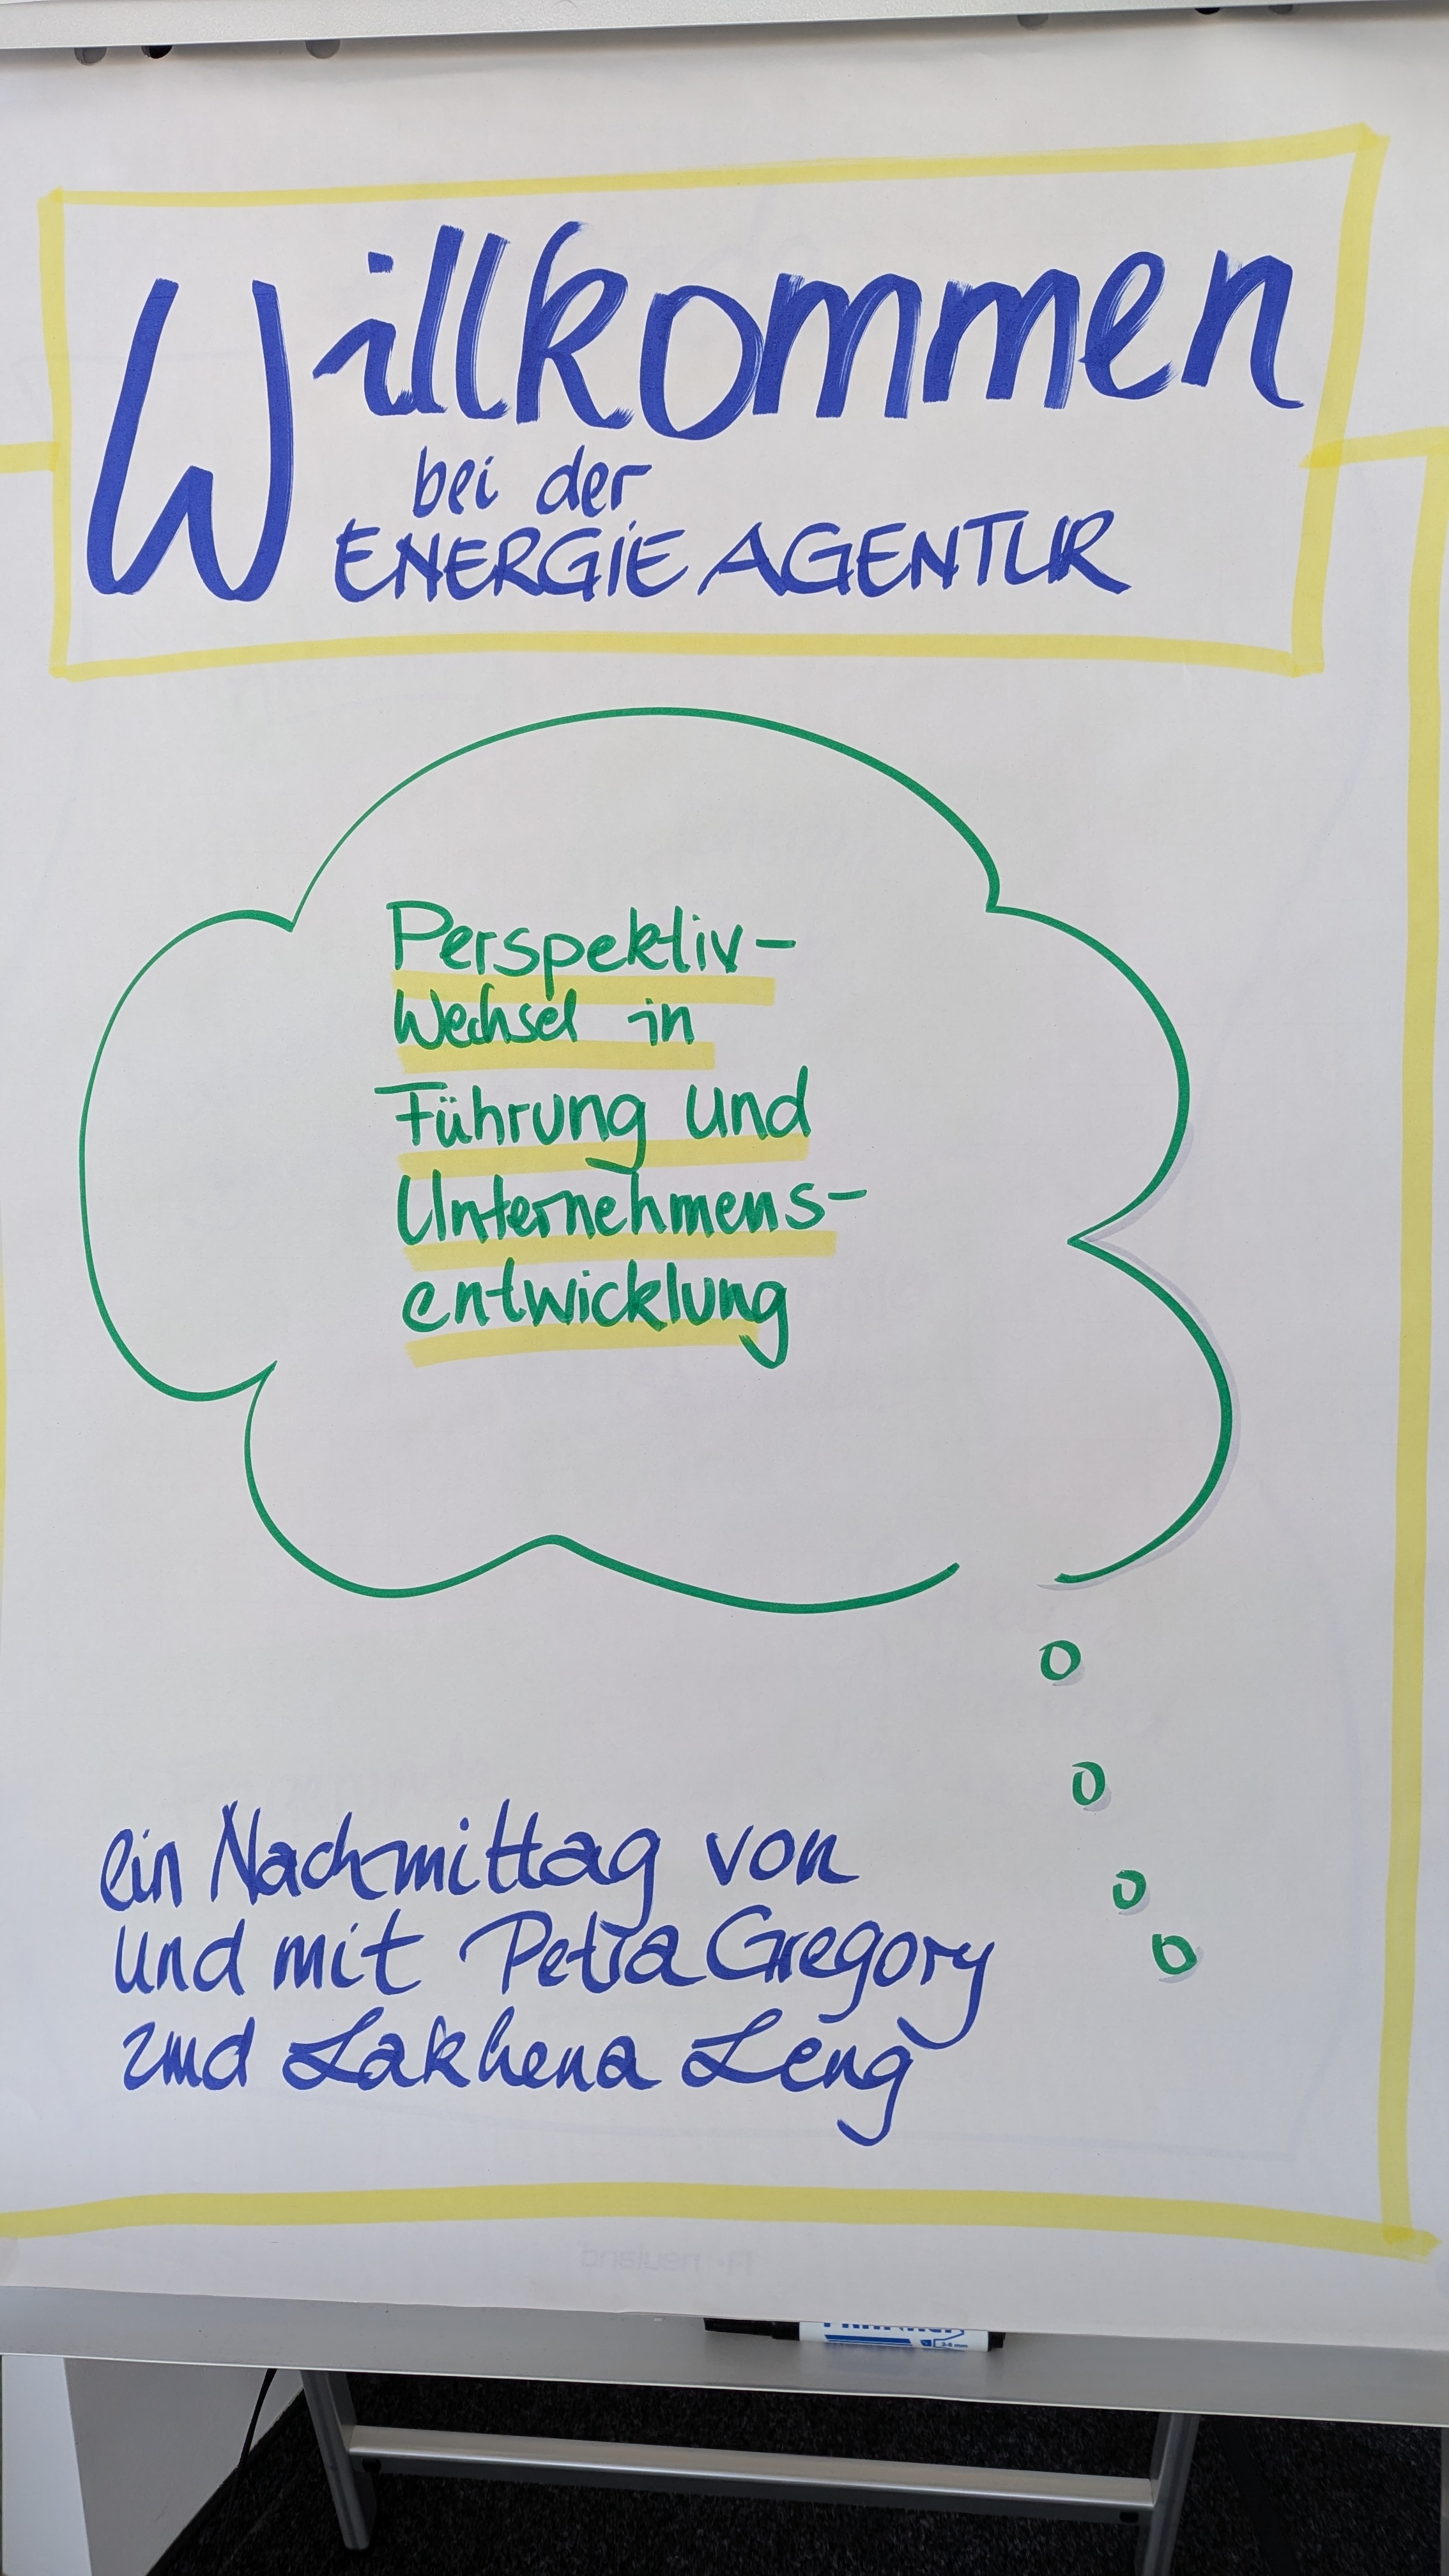 Willkommen
bei der
ENERGIE AGENTUR
Perspektiv-
Wechsel in
Führung und
Unternehmens-
entwicklung
ein Nachmittag von
und mit Petra Gregory
und Lakhena Leng
neuland
2-6 mm